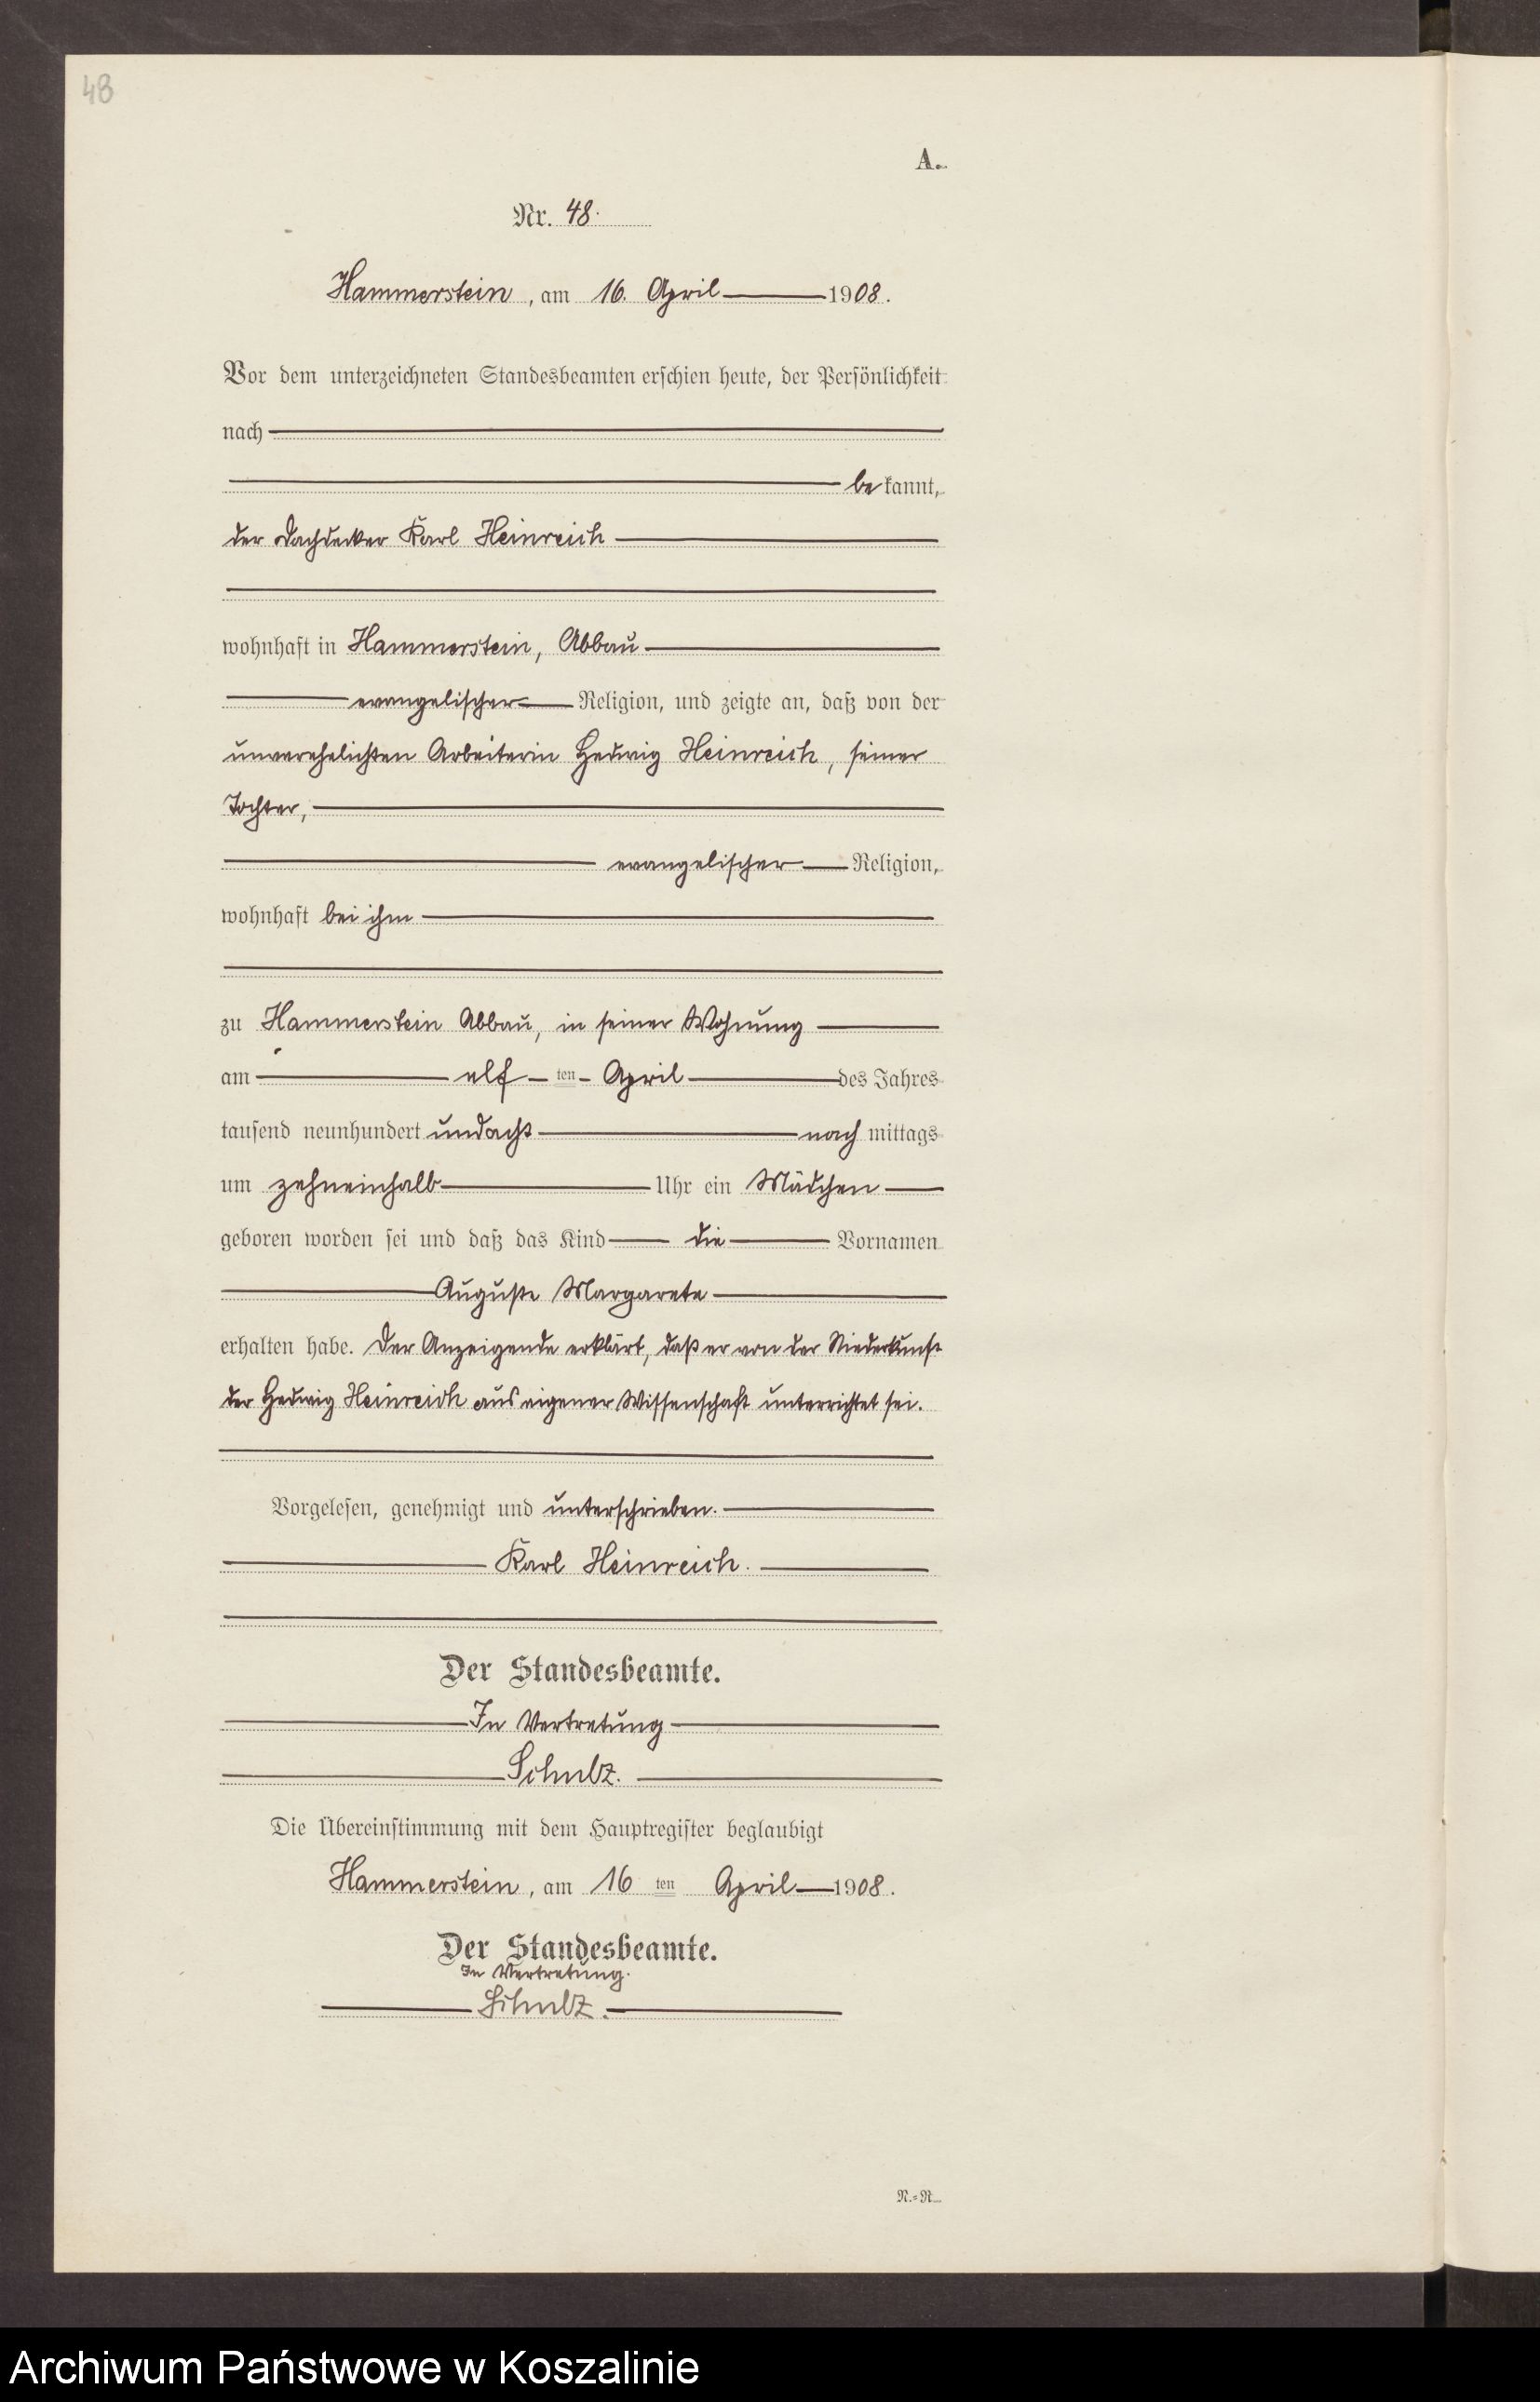 48
A.
Nr. 48.
Hammerstein, am 16. April 1908.
Vor dem unterzeichneten Standesbeamten erschien heute, der Persönlichkeit
nach
be kannt,
der Dachdecker Karl Heinreich
wohnhaft in Hammerstein, Abbau
evangelischer Religion, und zeigte an, daß von der
unverehelichten Arbeiterin Hedwig Heinreich, seiner
Tochter,
evangelischer Religion,
wohnhaft bei ihm
zu Hammerstein Abbau, in seiner Wohnung
am elf ten April des Jahres
tausend neunhundert undacht nach mittags
um zehneinhalb Uhr ein Mädchen
geboren worden sei und daß das Kind die Vornamen
Auguste Margarete
erhalten habe. Der Anzeigende erklärt, daß er von der Niederkunft
der Hedwig Heinreich aus eigener Wissenschaft unterrichtet sei.
Vorgelesen, genehmigt und unterschrieben.
Karl Heinreich.
Der Standesbeamte.
In Vertretung
Schulz.
Die Übereinstimmung mit dem Hauptregister beglaubigt
Hammerstein, am 16 ten April 1908.
Der Standesbeamte.
In Vertretung.
Schulz.
N.=R.
Archiwum Państwowe w Koszalinie